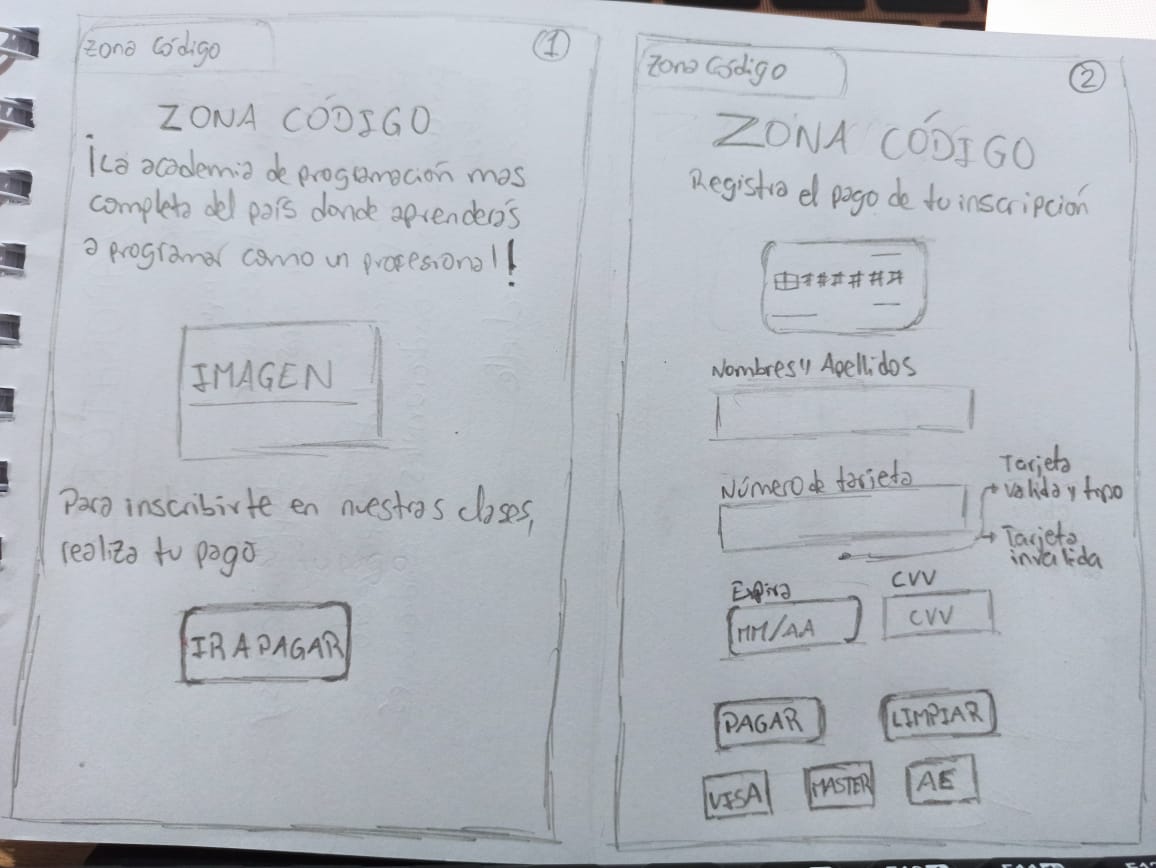 zona código
1
ZONA CÓDIGO
¡La academia de programación mas
completa del país donde aprenderás
a programar como un profesional!
IMAGEN
Para inscribirte en nuestras clases,
realiza tu pago
IR A PAGAR
zona código
2
ZONA CÓDIGO
Registra el pago de tu inscripción
#######
Nombres y Apellidos
Número de tarjeta
Tarjeta
valida y tipo
Tarjeta
invalida
Expira
MM/AA
CVV
CVV
PAGAR
LIMPIAR
VISA
MASTER
AE